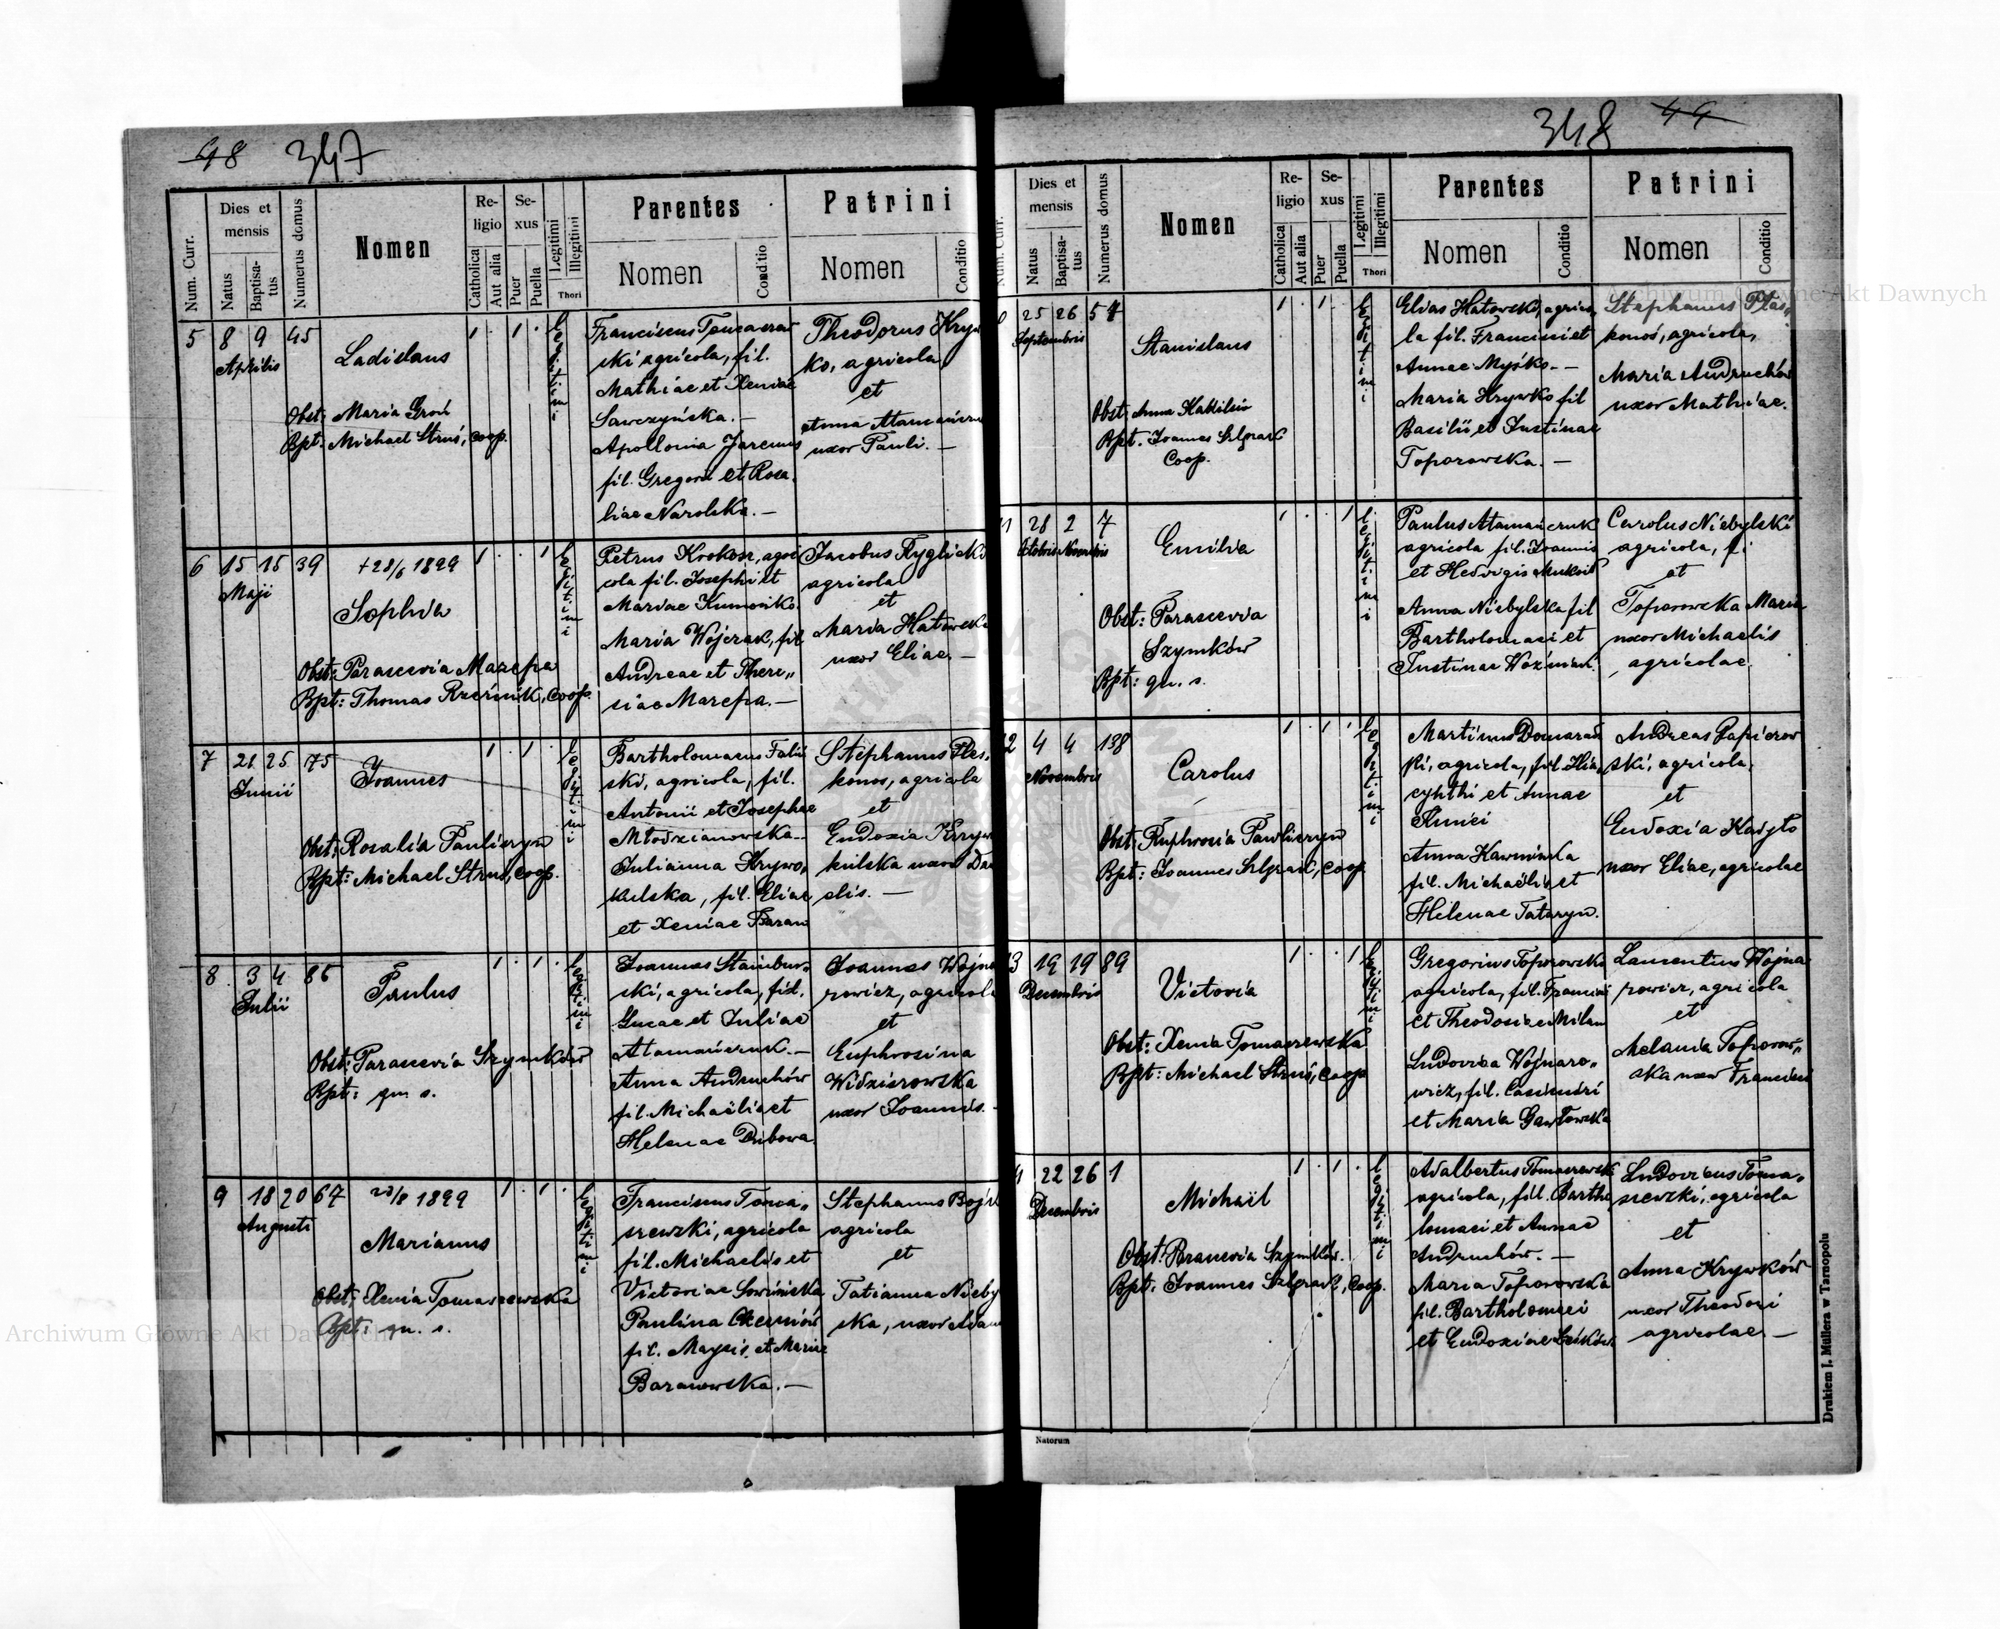 48 347
Num. Curr.
Dies et mensis
Natus
Baptisatus
Numerus domus
Nomen
Religio
Catholica
Aut alia
Sexus
Puer
Puella
Legitimi
Illegitimi
Thori
Parentes
Nomen
Conditio
Patrini
Nomen
Conditio
5 8 9 45
Aprilis
Ladislaus
Obst: Maria Groń
Bpt: Michael Struś, coop.
1 . 1 .
legitimi
Franciscus Tomaszew
ski agricola, fil.
Mathiae et Xeniae
Sawczyńska. —
Apollonia Jaremus
fil. Gregorii et Rosa
liae Narolska. —
Theodorus Kryw
ko, agricola
et
Anna Atamańczu
uxor Pauli. —
6 15 15 39
Maji
+ 28/6 1899
Sophia
Obst: Parascevia Mazepa
Bpt: Thomas Rzeźnik, coop.
1 . . 1
legitimi
Petrus Krokosz, agri
cola fil. Josephi et
Mariae Kumowko
Maria Wojczak, fil
Andreae et There„
siae Mazepa. —
Jacobus Ryglicki
agricola
et
Maria Hatowska
uxor Eliae. —
7 21 25 75
Junii
Joannes
Obst: Rosalia Pauliczyn
Bpt: Michael Struś, coop.
1 . 1 .
legitimi
Bartholomaeus Falii
ski, agricola, fil.
Antonii et Josephae
Młodzianowska.—
Julianna Krywo„
kulska, fil. Eliae
et Xeniae Baran
Stephanus Ples„
konos, agricola
et
Eudoxia Krywo
kulska uxor Da
elis. —
8 3 4 86
Julii
Paulus
Obst: Parascevia Szymków
Bpt: qu. s.
1 . 1 .
legitimi
Joannes Stambur„
ski, agricola, fil.
Lucae et Juliae
Atamańczuk. —
Anna Andruchów
fil. Michaëlis et
Helenae Dubowa
Joannes Wojna
rowicz, agricola
et
Euphrosina
Widzisrowska
uxor Joannis. —
9 18 20 67
Augusti
23/8 1899
Marianus
Obst: Xenia Tomaszewska
Bpt: qu. s.
1 . 1 .
legitimi
Franciscus Toma„
szewzki, agricola
fil. Michaelis et
Victoriae Sowińska
Paulina Czerniów
fil. Moysis et Mariae
Baranowska. —
Stephanus Bojk
agricola
et
Tatianna Nieby
ska, uxor Adam
348 49
Num. Curr.
Dies et mensis
Natus
Baptisatus
Numerus domus
Nomen
Religio
Catholica
Aut alia
Sexus
Puer
Puella
Legitimi
Illegitimi
Thori
Parentes
Nomen
Conditio
Patrini
Nomen
Conditio
25 26 54
Septembris
Stanislaus
Obst: Anna
Bpt. Joannes
Coop.
1 . 1 .
legitimi
Elias Hatowski, agrico
la fil. Francisci et
Annae Myśko. —
Maria Hrywko fil
Basilii et Justinae
Toporowska. —
Stephanus Ples„
konos, agricola,
Maria Andruchów
uxor Mathiae.
1 28 2 7
Octobris Novembris
Emilia
Obst: Parascevia
Szymków
Bpt: qu. s.
1 . . 1
legitimi
Paulus Atamańczuk
agricola fil. Joannis
et Hedvigis
Anna Niebylska fil
Bartholomaei et
Justinae Woźniak.
Carolus Niebylski
agricola,
et
Toporowska Maria
uxor Michaelis
agricolae.
2 4 4 138
Novembris
Carolus
Obst: Euphrosia Pawliczyn
Bpt: Joannes coop.
1 . 1 1
legitimi
Martinus Domarad
ki, agricola, fil. Hia
cynthi et Annae
Anna Kawińska
fil. Michaëlis et
Helenae Tataryn.
Andreas Gapierow
ski, agricola,
et
Eudoxia Kadyło
uxor Eliae, agricolae
3 19 19 89
Decembris
Victoria
Obst: Xenia Tomaszewska
Bpt: Michael Struś, coop
1 . . 1
legitimi
Gregorius Toporowski
agricola, fil. Francisci
et Theodosiae Milan
Ludovica Wojnaro„
wicz, fil. Casimiri
et Maria Gawłowska
Laurentius Wojna
rowicz, agricola
et
Melania Toporow„
ska uxor Francisci
4 22 26 1
Decembris
Michaël
Obst: Parascevia Szymków.
Bpt: Joannes coop.
1 . 1 .
legitimi
Adalbertus Tomaszewski
agricola, fil. Bartho
lomaei et Annae
Andruchów. —
Maria Toporowska
fil. Bartholomaei
et Eudoxiae
Ludovicus Toma„
szewzki, agricola
et
Anna Krywków
uxor Theodori
agricolae. —
Natorum
Drukiem J. Müllera w Tarnopolu
Archiwum Główne Akt Dawnych
Archiwum Główne Akt Dawnych